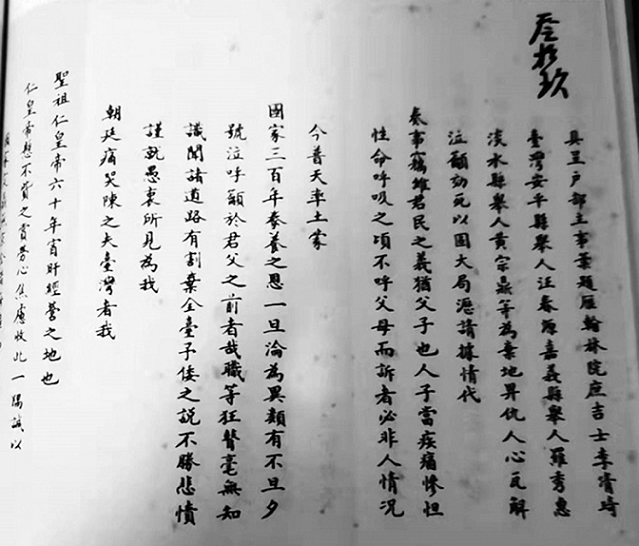 叁拾玖
具呈戶部主事葉題雁翰林院庶吉士李清琦
臺灣安平縣舉人汪春源嘉義縣舉人羅秀惠
淡水縣舉人黃宗鼎等為棄地畀仇人心瓦解
泣籲効死以固大局瀝請據情代
奏事竊維君民之義猶父子也人子當疾痛慘怛
性命呼吸之頃不呼父母而訴者必非人情況
今普天率土蒙
國家三百年豢養之恩一旦淪為異類有不旦夕
號泣呼籲於君父之前者哉職等狂瞽毫無知
識聞諸道路有割棄全臺予倭之說不勝悲憤
謹就愚衷所見為我
朝廷痛哭陳之夫臺灣者我
聖祖仁皇帝六十年宵旰經營之地也
仁皇帝懸不貲之賞勞心焦慮收此一隅誠以